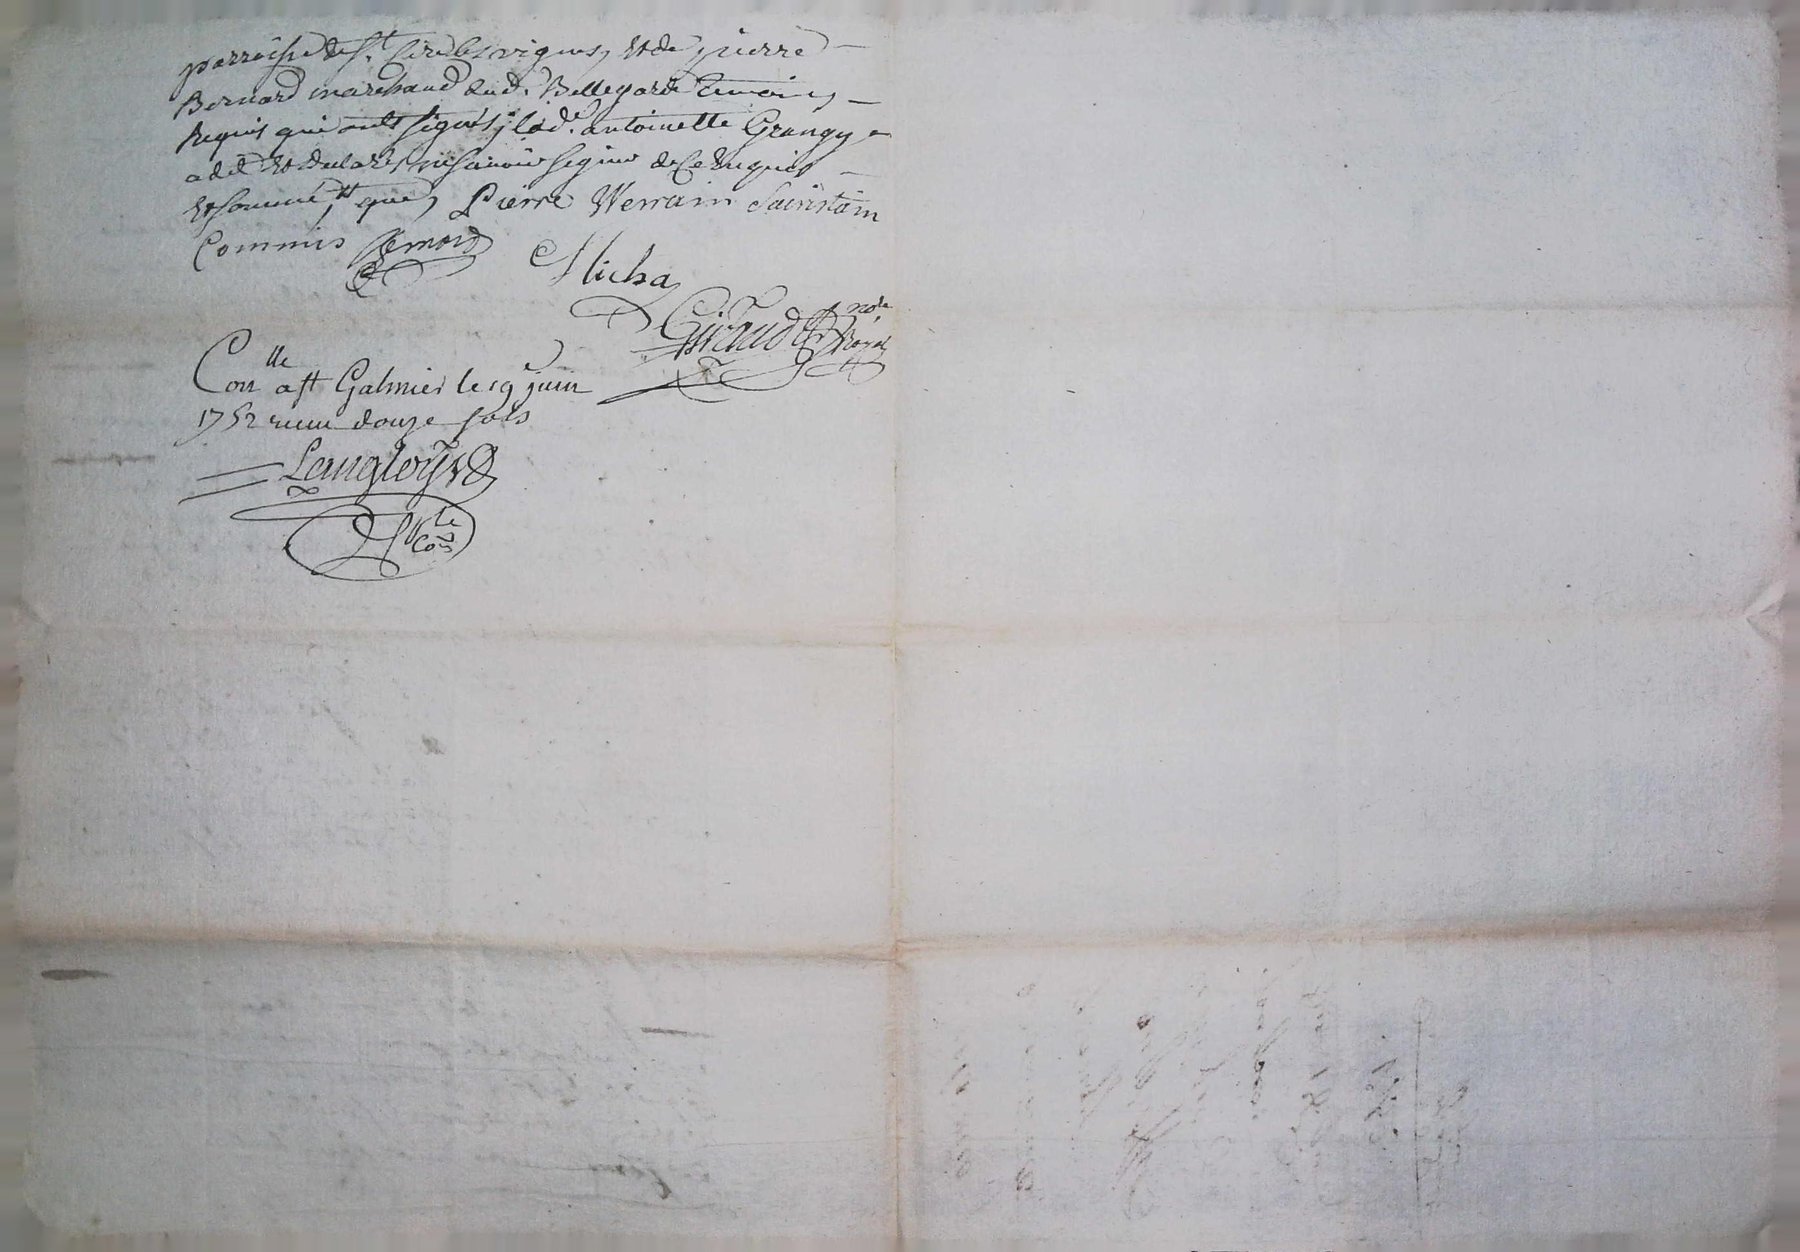 parroisse de St. Cire les vignes, et de pierre
Bernard marchand dud. Bellegarde temoins
requis qui ont signés, lad.e antoinette Grangy
a dit et declaré ne savoir signer de ce enquise
et sommé, Pierre Werrain
Commis Bernard Micha
Giraud no.re Royal
Con.lle a st Galmier le 19 juin
1752 reçu douze sols
Langloys